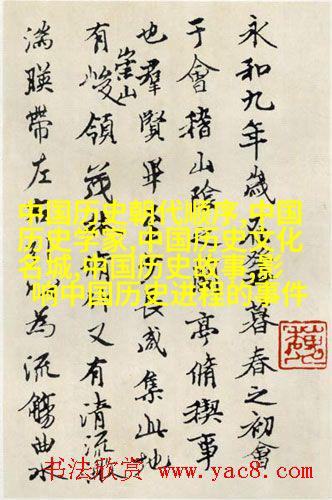 永和九年歲暮春之初會
于會稽山陰亭脩稧事
也羣賢畢長咸集此地
有崇山峻領茂又有清流激
湍暎帶左為流觴曲水
中国历史朝代顺序,中国
历史学家,中国历史文化
名城,中国历史故事,影
响中国历史进程的事件
书法欣赏 www.yac8.com